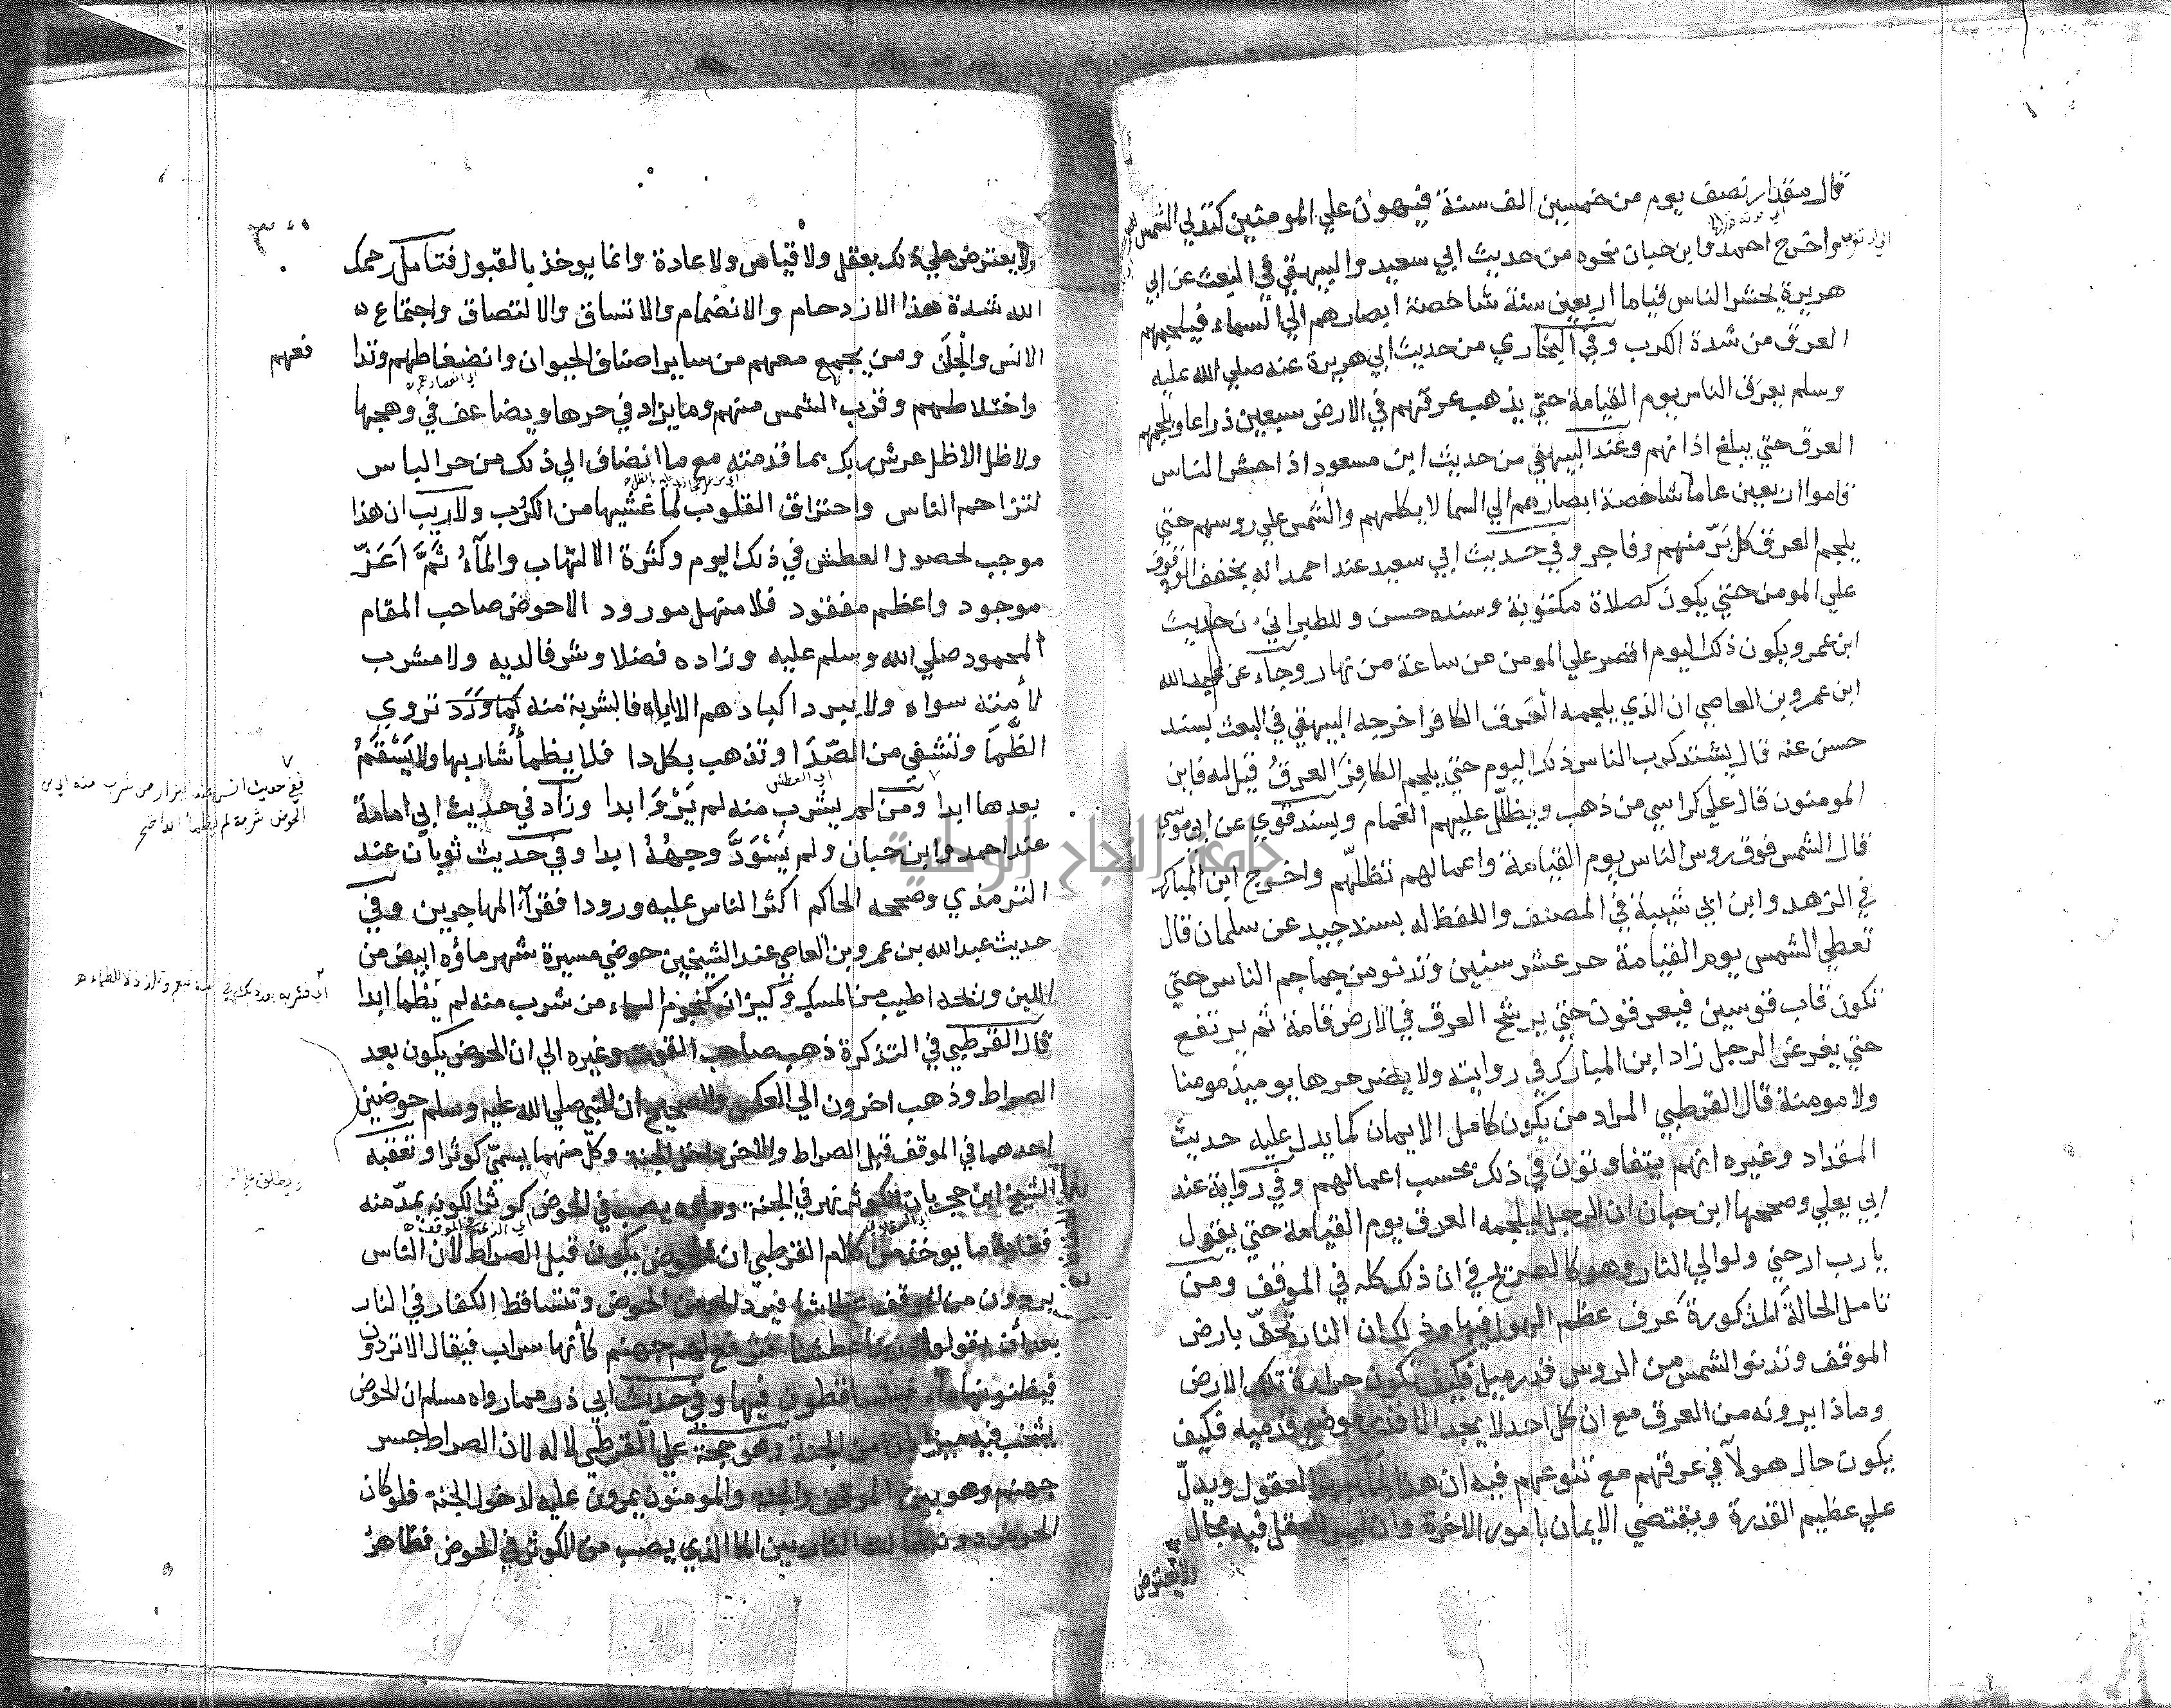 قال مقدار نصف يوم من خمسين الف سنة فيهون علي المومنين كتدلي الشمس
واخرج احمد وابن حبان نحوه من حديث ابي سعيد والبيهقي في البعث عن ابي
هريرة يحشر الناس قياما اربعين سنة شاخصة ابصارهم الي السماء فيلجمهم
العرق من شدة الكرب وفي البخاري من حديث ابي هريرة عنه صلي الله عليه
وسلم يعرق الناس يوم القيامة حتي يذهب عرقهم في الارض سبعين ذراعا ويلجمهم
العرق حتي يبلغ اذانهم وعند البيهقي من حديث ابن مسعود اذا حشر الناس
قاموا اربعين عاما شاخصة ابصارهم الي السما لا يكلمهم والشمس علي روسهم حتي
يلجم العرق كل بَرّ منهم وفاجر وفي حديث ابي سعيد عند احمد انه يخفف الوقوف
علي المومن حتي يكون كصلاة مكتوبة وسنده حسن وللطبراني من حديث
ابن عمر ويكون ذلك اليوم اقصر علي المومن من ساعة من نهار وجاء عن عبد الله
ابن عمرو بن العاصي ان الذي يلجمه العرق الكافر اخرجه البيهقي في البعث بسند
حسن عنه قال يشتد كرب الناس ذلك اليوم حتي يلجم الكافرَ العرقُ قيل له فاين
المومنون قال علي كراسي من ذهب ويظلّل عليهم الغمام وبسند قوي عن ابي موسي
قال الشمس فوق روس الناس يوم القيامة واعمالهم تظلّهم واخرج ابن المبارك
في الزهد وابن ابي شيبة في المصنف واللفظ له بسند جيد عن سلمان قال
تعطي الشمس يوم القيامة حر عشر سنين وتدنو من جماجم الناس حتي
تكون قاب قوسين فيعرقون حتي يرشح العرق في الارض قامة ثم يرتفع
حتي يغرغر الرجل زاد ابن المبارك في روايته ولا يضر حرها يوميذ مومنا
ولا مومنة قال القرطبي المراد من يكون كامل الايمان كما يدل عليه حديث
المقداد وغيره انهم يتفاوتون في ذلك بحسب اعمالهم وفي رواية عند
ابي يعلي وصححها ابن حبان ان الرجل ليلجمه العرق يوم القيامة حتي يقول
يا رب ارحني ولو الي النار وهو كالصريح في ان ذلك كله في الموقف ومن
تامل الحالة المذكورة عرف عظم الهول فيها وذلك ان النار تحفّ بارض
الموقف وتدنو الشمس من الروس قدر ميل فكيف تكون حرارة تلك الارض
وماذا يرونه من العرق مع ان كل احد لا يجد الا قدر موضع قدميه فكيف
يكون حال هولآ في عرقهم مع تنوعهم فيه ان هذا لممّا يبهر العقول ويدلّ
علي عظيم القدرة ويقتضي الايمان بامور الاخرة وان ليس للعقل فيه مجال
ولا يعترض
ولا يعترض علي ذلك بعقل ولا قياس ولا عادة وانما يوخذ بالقبول فتامل رحمك
الله شدة هذا الازدحام والانضمام والاتساق والالتصاق واجتماع
الانس والجان ومن يجمع معهم من ساير اصناف الحيوان وانضغاطهم وتدا
فعهم
واختلاطهم وقرب الشمس منهم وما يزاد في حرها ويضاعف في وهجها
ولا ظل الا ظل عرش ربك بما قدمته مع ما انضاف الي ذلك من حر الباس
لتزاحم الناس واحتراق القلوب لما غشيها من الكرب ولا ريب ان هذا
موجب لحصول العطش في ذلك اليوم وكثرة الالتهاب والمآءُ ثَمَّ اَعَزّ
موجود واعظم مفقود فلا منهل مورود الا حوض صاحب المقام
المحمود صلي الله وسلم عليه وزاده فضلا وشرفا لديه ولا مشرب
لأمته سواه ولا يبرد اكبادهم الا اياه فالشربة منه كما وَرَدَ تروي
الظَّمَا وتشفي من الصَّدَا وتذهب بكل دا فلا يظمأ شاربها ولا يَسْقَمُ
بعدها ابدا ومن لم يشرب منه لم يَرْوَ ابدا وزاد في حديث ابي امامة
اي العطش
عند احمد وابن حبان ولم يَسْوَدَّ وجهُهُ ابدا وفي حديث ثوبان عند
الترمذي وصححه الحاكم اكثر الناس عليه ورودا فقرآء المهاجرين وفي
حديث عبد الله بن عمرو بن العاصي عند الشيخين حوضي مسيرة شهر ماؤه ابيض من
اللبن وريحه اطيب من المسك وكيزانه كنجوم السماء من شرب منه لم يَظما ابدا
قال القرطبي في التذكرة ذهب صاحب القوت وغيره الي ان الحوض يكون بعد
الصراط وذهب اخرون الي العكس والصحيح ان للنبي صلي الله عليه وسلم حوضين
احدهما في الموقف قبل الصراط والاخر داخل الجنة وكلّ منهما يسمّي كوثرا وتعقبه
الشيخ ابن حجر بان الكوثر نهر في الجنة وماوه يصب في الحوض كوثرا لكونه يمدّ منه
فغاية ما يوخذ من كلام القرطبي ان الحوض يكون قبل الصراط لأن الناس
يردون من الموقف عطاشا فيرد المومن الحوض وتتساقط الكفار في النار
بعد أن يقولوا ربنا عطشنا فترفع لهم جهنم كأنها سراب فيقال الا تردون
فيظنونها مآء فيتساقطون فيها وفي حديث ابي ذر مما رواه مسلم ان الحوض
يشخب فيه ميزابان من الجنة وهو حجة علي القرطبي لا له لان الصراط جسر
جهنم وهو بين الموقف والجنة والمومنون يمرون عليه لدخول الجنة فلو كان
الحوض دونه لحالت النار بين الما الذي يصب من الكوثر في الحوض فظاهر
ففي حديث انس عند البزار من شرب منه اي من
الحوض شربة لم يظما ابدا صح
جامعة النجاح الوطنية